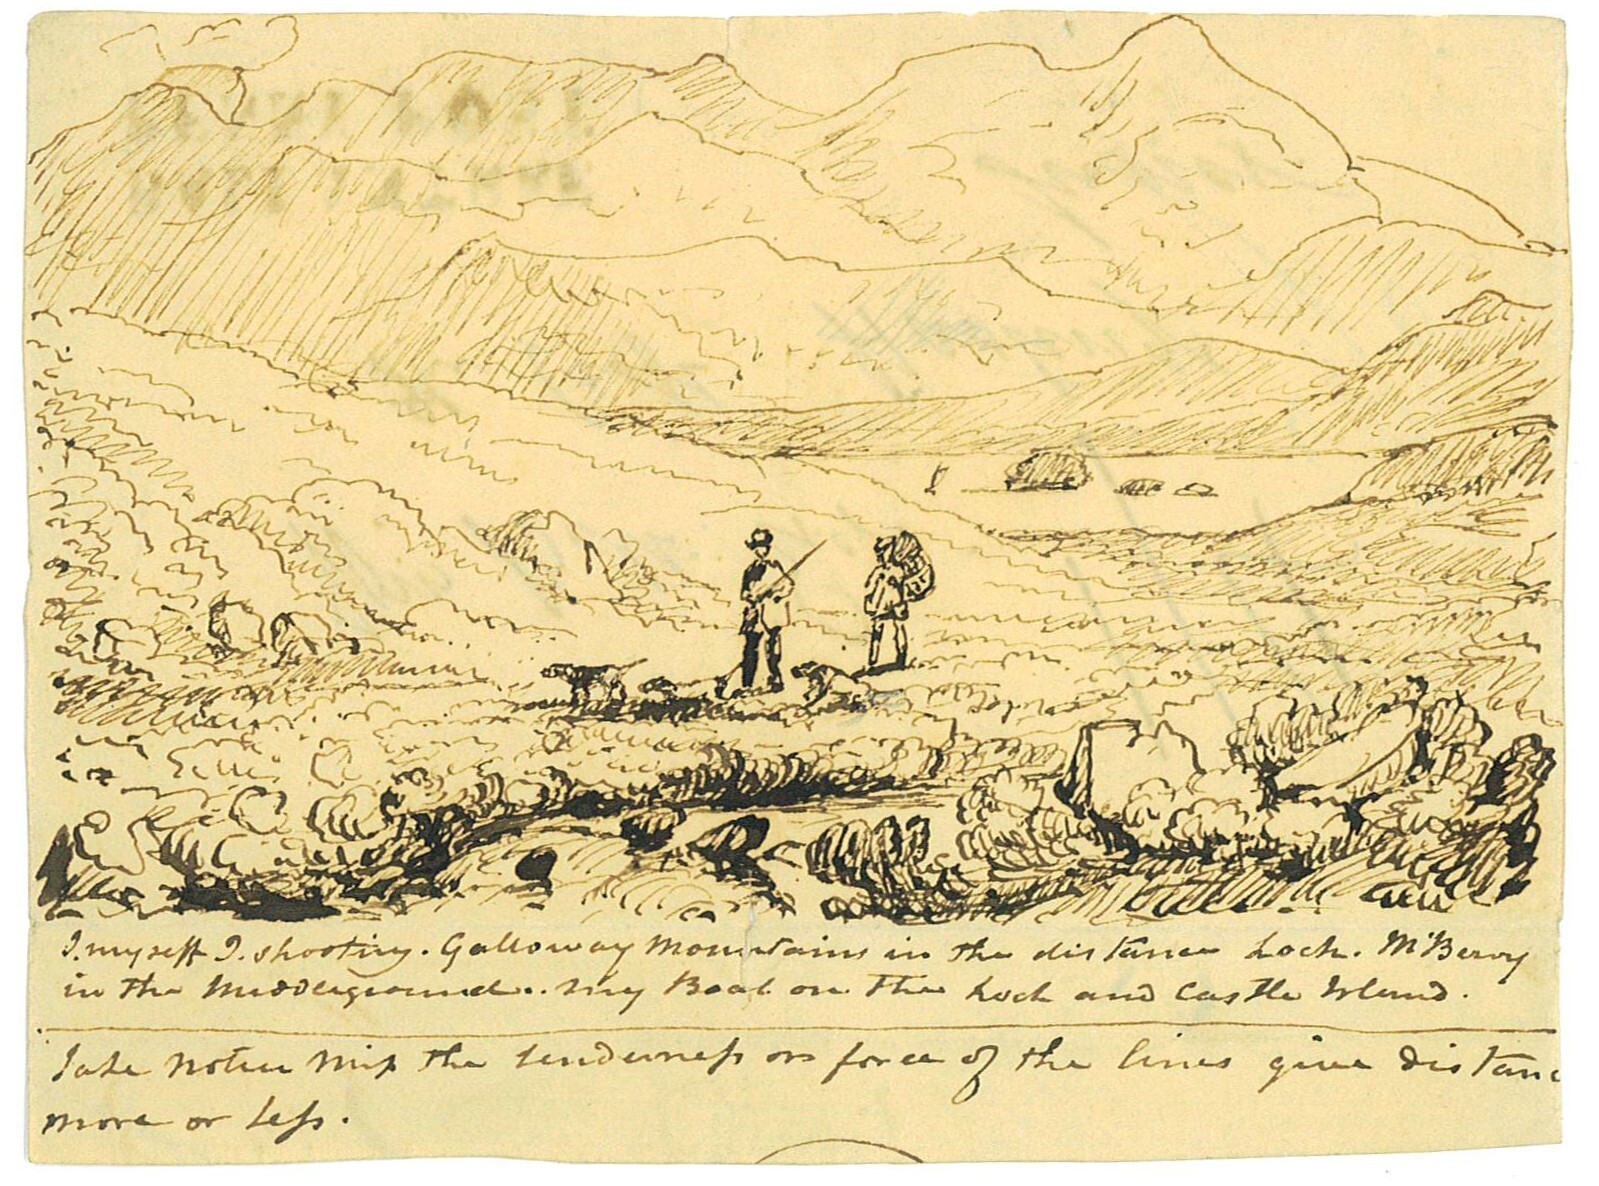 I. myself I. shooting. Galloway Mountains in the distance Loch. McBerry
in the Middleground.. My Boat on the Loch and Castle Island.
Take notice Miss the tenderness or force of the lines give distanc
more or less.